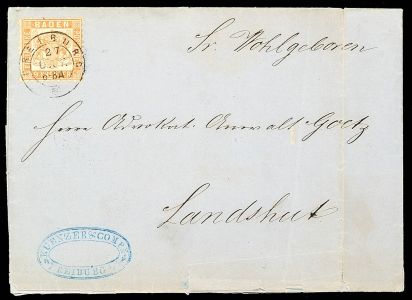 BADEN
FREIBURG
27
6-8A
Sr. Wohlgeboren
Herrn Advokat-Anwalt Goetz
Landshut
KUENZER & COMP.
FREIBURG